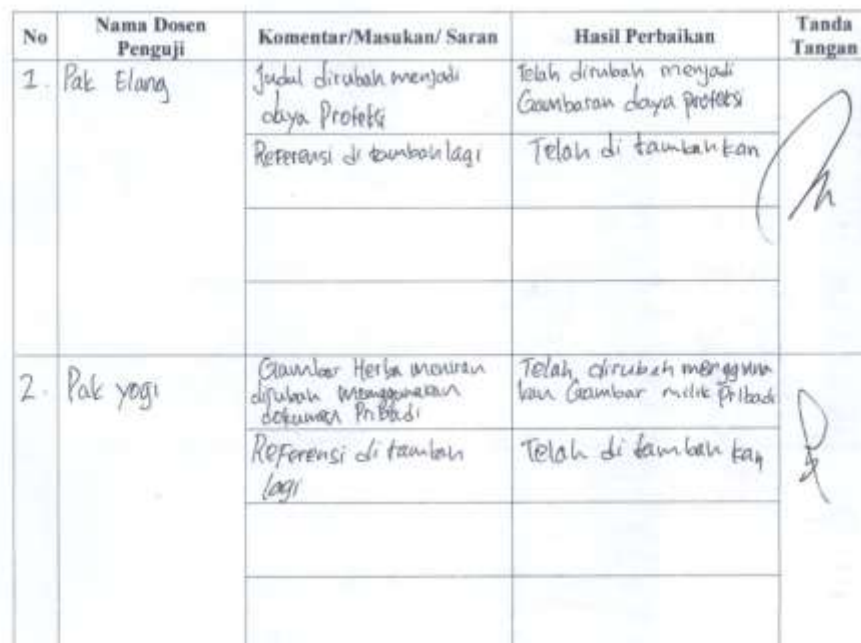 No
Nama Dosen
Penguji
Komentar/Masukan/ Saran
Hasil Perbaikan
Tanda
Tangan
1. Pak Elang
Judul dirubah menjadi
daya Proteksi
Telah dirubah menjadi
Gambaran daya proteksi
Referensi di tambah lagi
Telah di tambahkan
2. Pak yogi
Gambar Herba meniran
dirubah menggunakan
dokumen Pribadi
Telah dirubah menggunakan
kan Gambar milik Pribadi
Referensi di tambah
lagi
Telah di tambah kan